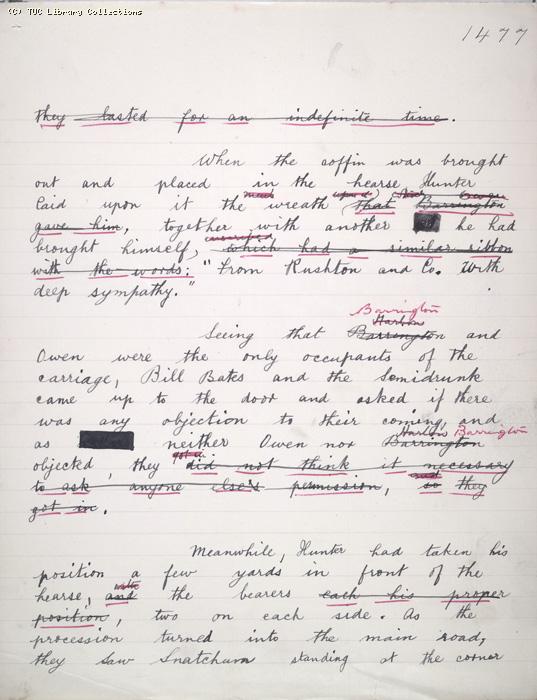 (C) TUC Library Collections
1477
they lasted for an indefinite time.
When the coffin was brought
out and placed in the hearse, Hunter
laid upon it the wreath that Barrington
gave him, together with another he had
brought himself, which had a similar ribbon
with the words: "From Rushton and Co. With
deep sympathy."
Barrington
Harlow
Seeing that Barrington and
Owen were the only occupants of the
carriage, Bill Bates and the Semidrunk
came up to the door and asked if there
was any objection to their coming, and
Harlow Barrington
as neither Owen nor Barrington
got in
objected, they did not think it necessary
and
to ask anyone else's permission, so they
got in.
Meanwhile, Hunter had taken his
position a few yards in front of the
with
hearse, and the bearers each his proper
position, two on each side. As the
procession turned into the main road,
they saw Snatchum standing at the corner